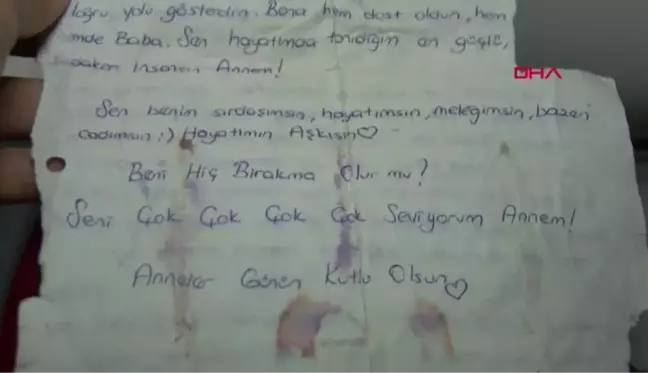 doğru yolu gösterdin. Bana hem dost oldun, hem
Baba. Sen hayatımda tanıdığım en güçlü,
insansın Annem!
DHA
Sen benim sırdaşımsın, hayatımsın, meleğimsin, bazen
cadımsın :) Hayatımın Aşkısın♡
Beni Hiç Bırakma Olur mu?
Seni Çok Çok Çok Çok Seviyorum Annem!
Anneler Günün Kutlu Olsun♡